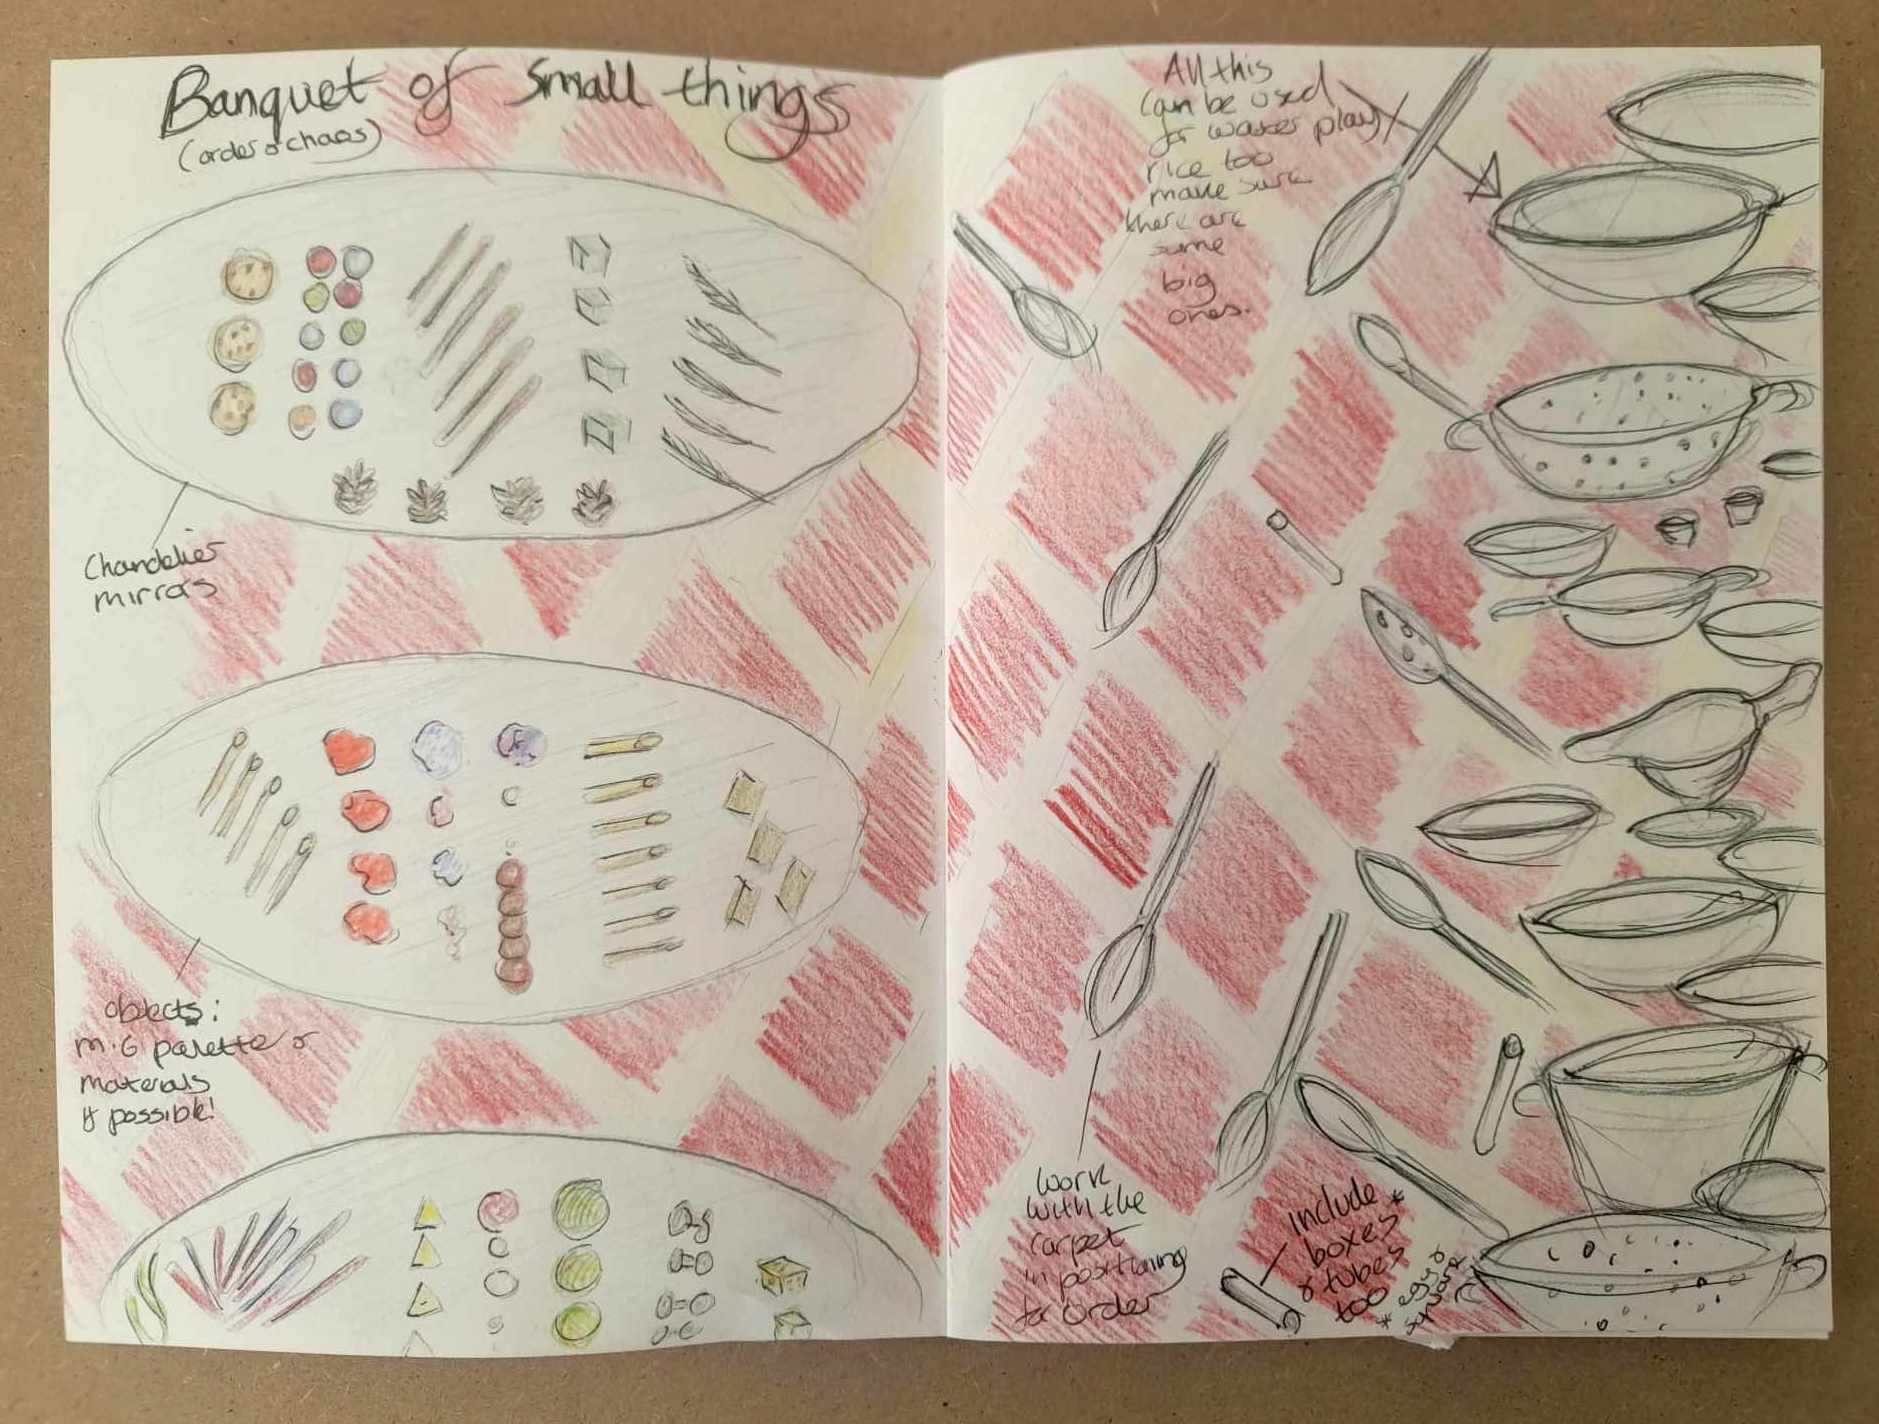 Banquet of small things
(order & chaos)
Chandelier
mirrors
objects:
M.G palette &
materials
if possible!
All this
can be used
for water play
rice too
make sure
there are
some
big
ones.
work
with the
carpet
in positioning
to order
include *
boxes
& tubes
too
* egg &
square